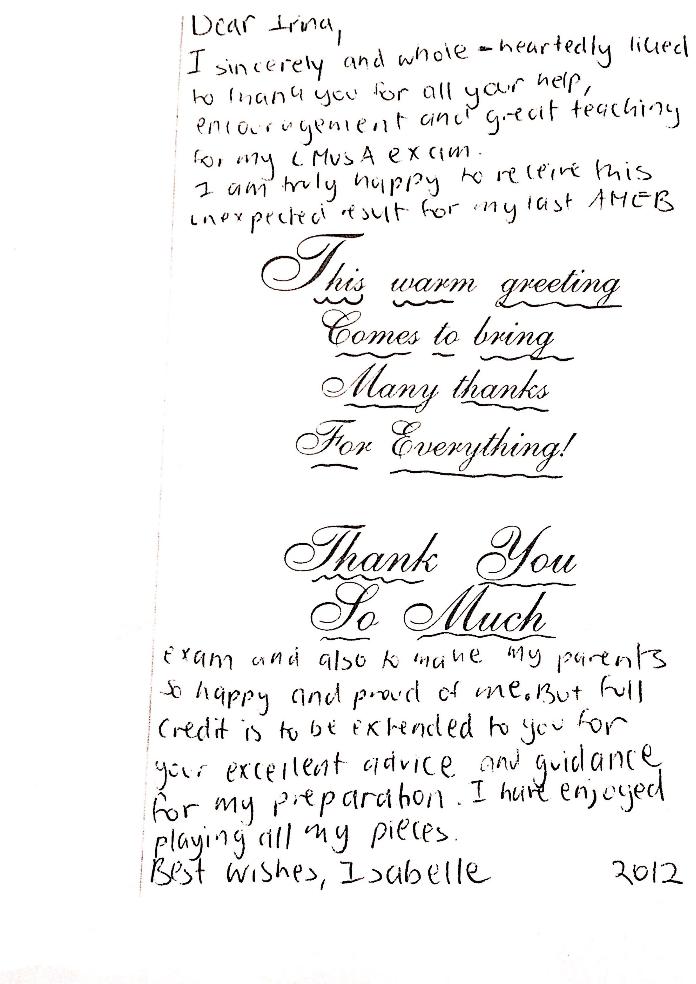 Dear Irina,
I sincerely and whole-heartedly liked
to thank you for all your help,
encouragement and great teaching
for my LMusA exam.
I am truly happy to receive this
unexpected result for my last AMEB
This warm greeting
Comes to bring
Many thanks
For Everything!
Thank You
So Much
exam and also to make my parents
so happy and proud of me. But full
credit is to be extended to you for
your excellent advice and guidance
for my preparation. I have enjoyed
playing all my pieces.
Best wishes, Isabelle 2012